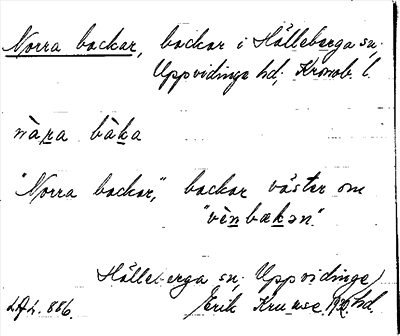 Norra backar, backar i Hälleberga sn;
Uppvidinge hd; Kronob. l.
nàra bàka
"Norra backar," backar väster om
"vènbækən".
Hälleberga sn, Uppvidinge hd.
L.A.L. 886. Erik Kruuse.